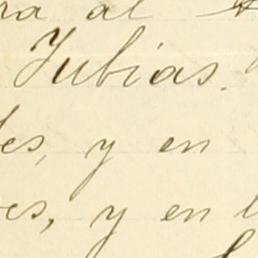 ra al
Jubias.
des, y en
es, y en l